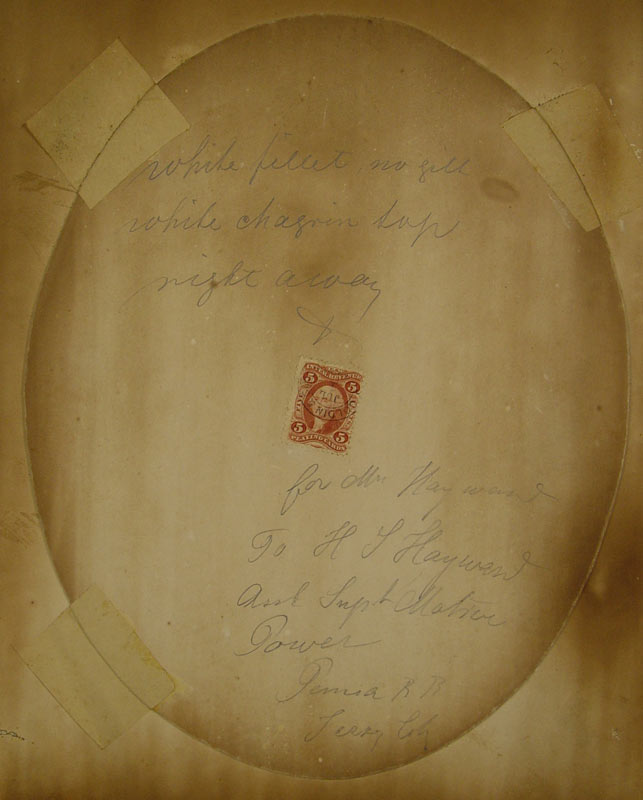 white fillet no gill
white chagrin top
right away
INTER. REVENUE
5 5
5 5
PLAYING CARDS
for Mr Hayward
To H S Hayward
Asst Supt Motive
Power
Penna R R
Jersey City